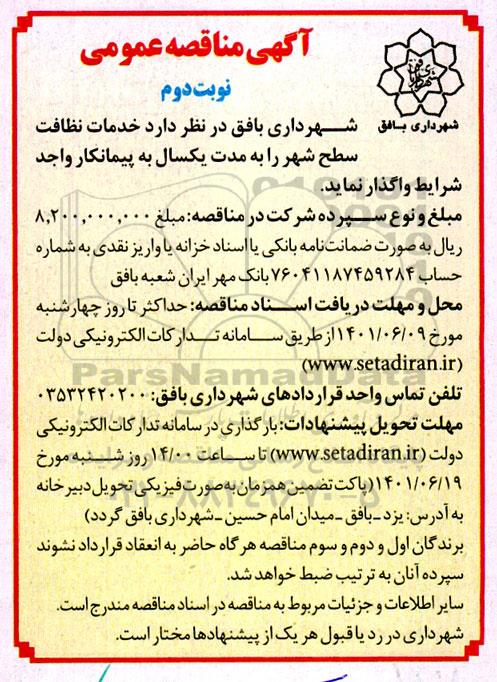 آگهی مناقصه عمومی
نوبت دوم
شهرداری بافق
شهرداری بافق در نظر دارد خدمات نظافت
سطح شهر را به مدت یکسال به پیمانکار واجد
شرایط واگذار نماید.
مبلغ و نوع سپرده شرکت در مناقصه: مبلغ ۸,۲۰۰,۰۰۰,۰۰۰
ریال به صورت ضمانت‌نامه بانکی یا اسناد خزانه یا واریز نقدی به شماره
حساب ۷۶۰۴۱۱۸۷۴۵۹۲۸۴ بانک مهر ایران شعبه بافق
محل و مهلت دریافت اسناد مناقصه: حداکثر تا روز چهارشنبه
مورخ ۱۴۰۱/۰۶/۰۹ از طریق سامانه تدارکات الکترونیکی دولت
(www.setadiran.ir)
تلفن تماس واحد قراردادهای شهرداری بافق: ۰۳۵۳۲۴۲۰۲۰۰
مهلت تحویل پیشنهادات: بارگذاری در سامانه تدارکات الکترونیکی
دولت (www.setadiran.ir) تا ساعت ۱۴/۰۰ روز شنبه مورخ
۱۴۰۱/۰۶/۱۹ (پاکت تضمین همزمان به صورت فیزیکی تحویل دبیرخانه
به آدرس: یزد ـ بافق ـ میدان امام حسین ـ شهرداری بافق گردد)
برندگان اول و دوم و سوم مناقصه هرگاه حاضر به انعقاد قرارداد نشوند
سپرده آنان به ترتیب ضبط خواهد شد.
سایر اطلاعات و جزئیات مربوط به مناقصه در اسناد مناقصه مندرج است.
شهرداری در رد یا قبول هر یک از پیشنهادها مختار است.
ParsNamadData